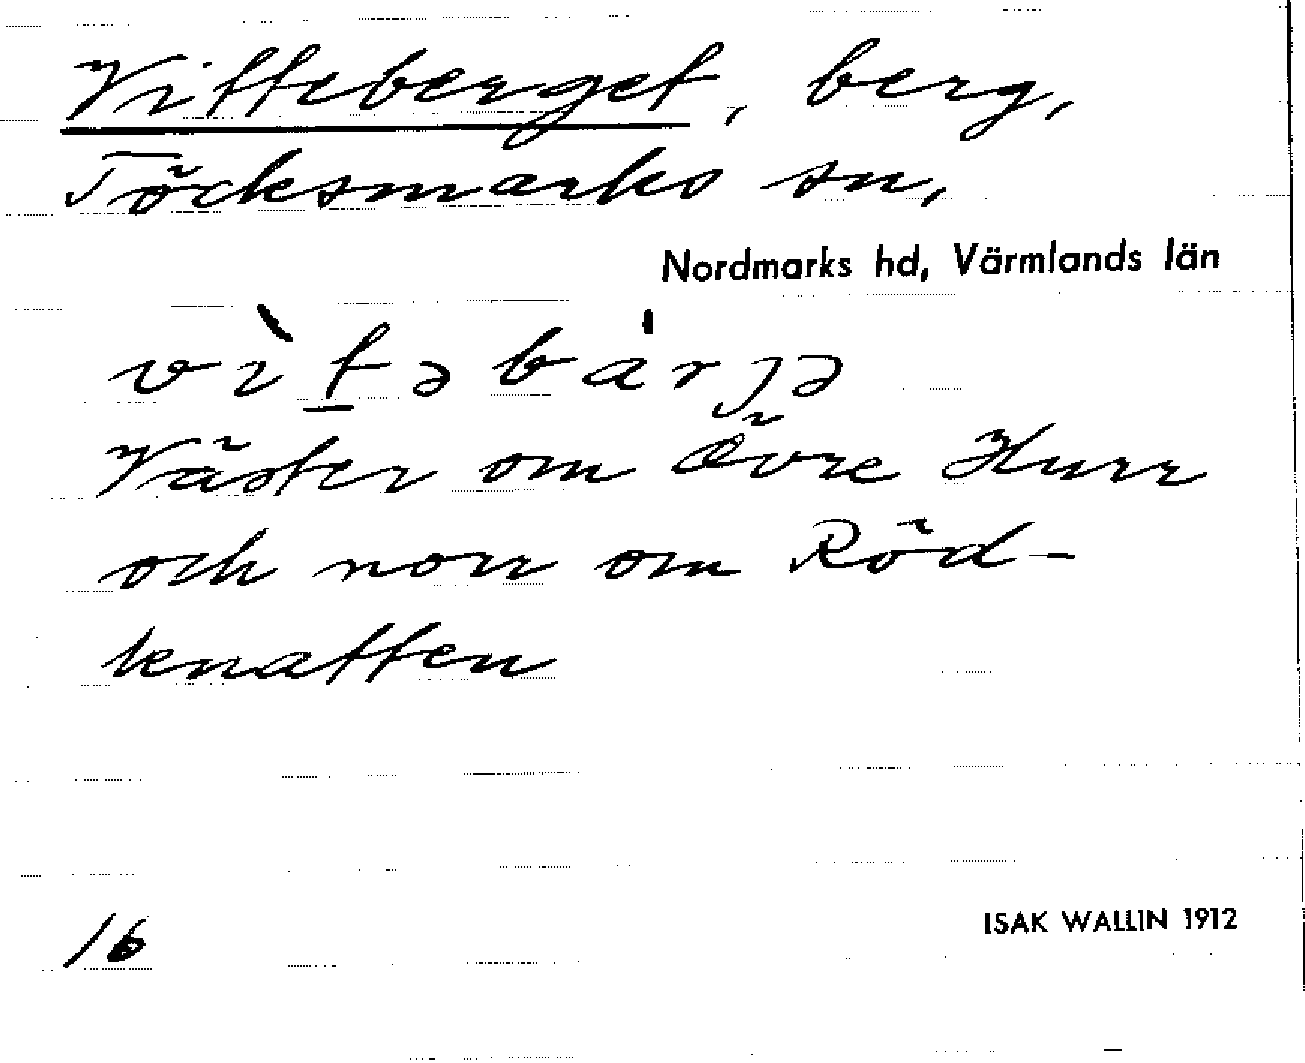 Vitteberget, berg,
Töcksmarks sn,
Nordmarks hd, Värmlands län
vìt̲əbárjə
Väster om Övre Hurr
och norr om Röd-
knatten
16
ISAK WALLIN 1912